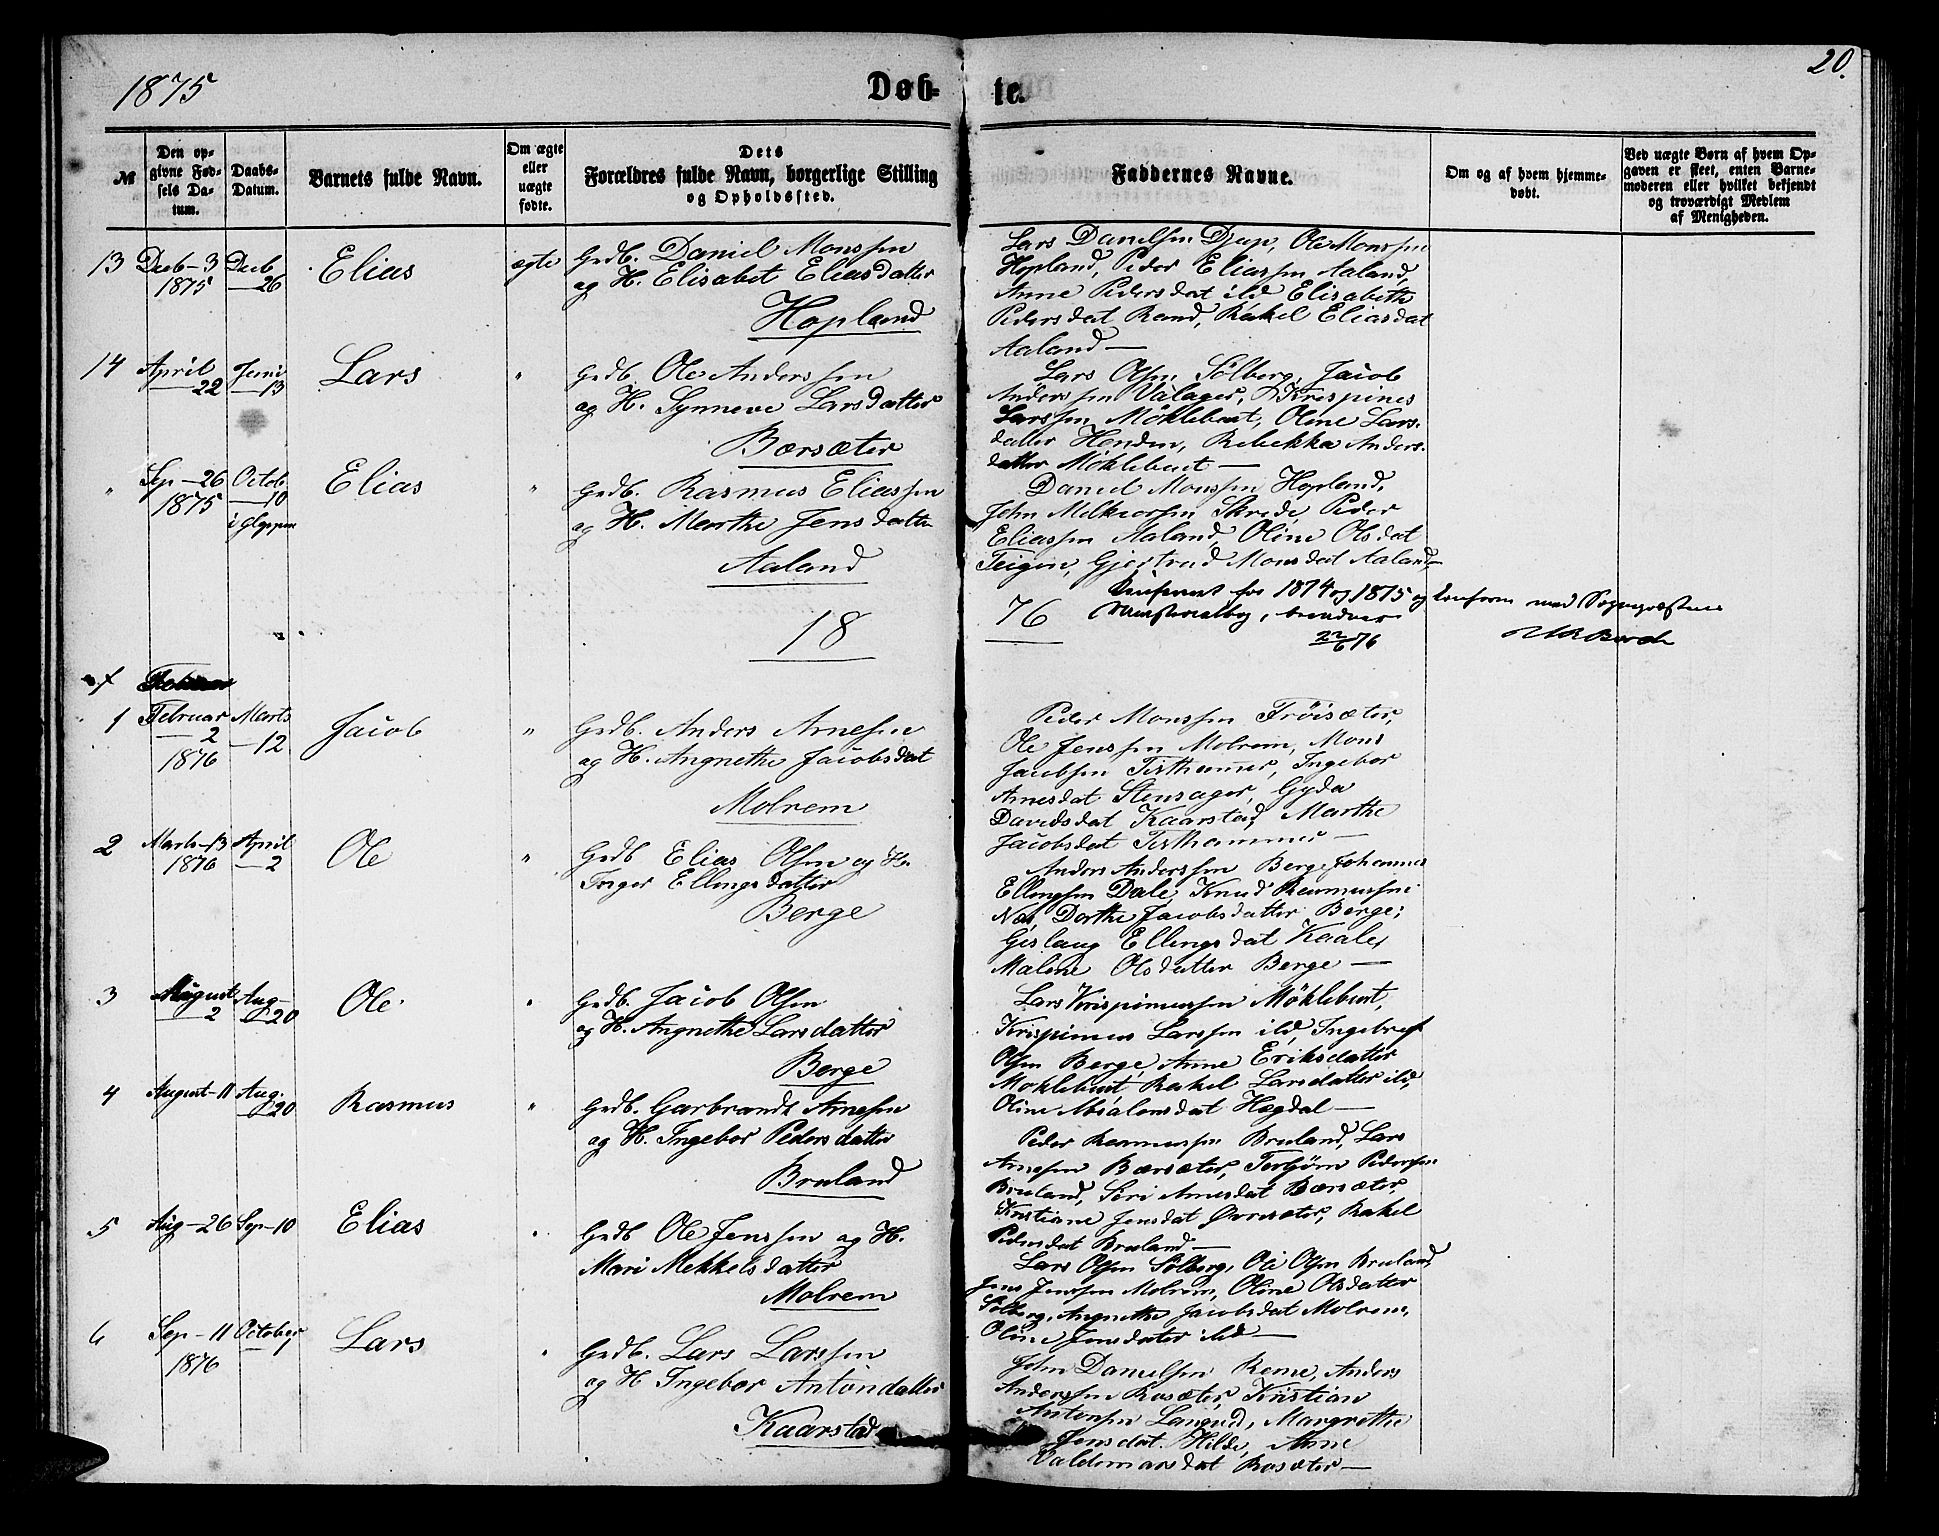 1875
Døb-
te.
20.
№
Den op-
givne Fød-
sels Da-
tum.
Daabs-
Datum.
Barnets fulde Navn.
Om ægte
eller
uægte
fødte.
Dets
Forældres fulde Navn, borgerlige Stilling
og Opholdssted.
Faddernes Navne.
Om og af hvem hjemme-
døbt.
Ved uægte Børn af hvem Op-
gaven er skeet, enten Barne-
moderen eller hvilket bekjendt
og troværdigt Medlem
af Menigheden.
13
Deeb-3
1875
Deeb
-26
Elias
ægte
Grdb. Daniel Monssen
og H. Elisabet Eliasdatter
Hopland
Lars Danielsen Djup, Ole Monssen
Hopland, Peder Eliassen Aaland,
Anne Pedersdat ild Elisabeth
Pedersdat Rand, Rakel Eliasdat
Aaland—
14
April
22
Juni
-13
Lars
"
Grdb. Ole Anderssen
og H. Synneve Larsdatter
Børsæter
Lars Olsen Sølberg, Jacob
Anderssen Valager, Krispines
Larssen Møklebust, Oline Lars-
datter Henden, Rebekka Anders-
datter Møklebust—
"
Sep-26
1875
Octob.
-10
i Gloppen
Elias
"
Grdb. Rasmus Eliassen
og H. Marthe Jensdatter
Aaland
Daniel Monssen Hopland,
John Melkiorsen Skrede Peder
Eliassen Aaland, Oline Olsdat
Teigen, Gjertrud Monsdat Aaland—
18
76
for 1874 og 1875 og conform med Sognepræstens
Ministerialbog, bevidner
22/6 76
1
Februar
2
1876
Marts
-12
Jacob
"
Grdb. Anders Arnesen
og H. Angnethe Jacobsdat
Molrem
Peder Monssen Frøisæter,
Ole Jenssen Molrem, Mons
Jacobsen Tisthammer, Ingebor
Arnesdat Stensager, Gyda
Davidsdat Kaarstad, Marthe
Jacobsdat Tisthammer—
2
Marts-13
1876
April
-2
Ole
"
Grdb Elias Olsen og H.
Inger Ellingsdatter
Berge
Anders Anderssen Berg, Johannes
Ellingsen Dale, Knud Rasmussen
Nes, Dorthe Jacobsdatter Berge;
Gislaug Ellingsdat Kaale,
Malene Olsdatter Berge—
3
August
2
Aug-
20
Ole
"
Grdb. Jacob Olsen
og H. Angnethe Larsdatter
Berge
Lars Krispinussen Møklebust,
Krispinus Larssen ild, Ingebregt
Olsen Berge, Anne Eriksdatter
Møklebust, Rakel Larsdatter ild,
Oline Absalonsdat Hægdal—
4
August-11
Aug.
20
Rasmus
"
Grdb. Garbrandt Arnesen
og H. Ingebor Pedersdatter
Bruland
Peder Rasmussen Bruland, Lars
Arnesen Børsæter, Torbjørn Pedersen
Bruland, Siri Arnesdat Børsæter,
Kristiane Jensdat Øvresæter, Rakel
Pedersdat Bruland—
5
Aug-26
Sep-10
Elias
"
Grdb Ole Jenssen og H.
Mari Mekkelsdatter
Molrem
Lars Olsen Sølberg, Ole Olsen Bruland,
Jens Jenssen Molrem, Oline Olsdatter
Sølberg, Angnethe Jacobsdat Molrem,
Oline Jensdatter ild—
6
Sep-11
1876
October
Lars
"
Grdb. Lars Larssen
og H Ingebor Antondatter
Kaarstad
John Danielsen Reme, Anders
Anderssen Rosæter, Kristian
Antonsen Langud, Margrethe
Jensdat. Hilde, Anne
Valdemarsdat Rosæter—